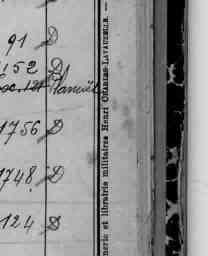 91 D
152 D
1756 D
1748 D
124 D
merie et librairie militaires Henri CHARLES-LAVAUZELLE. —